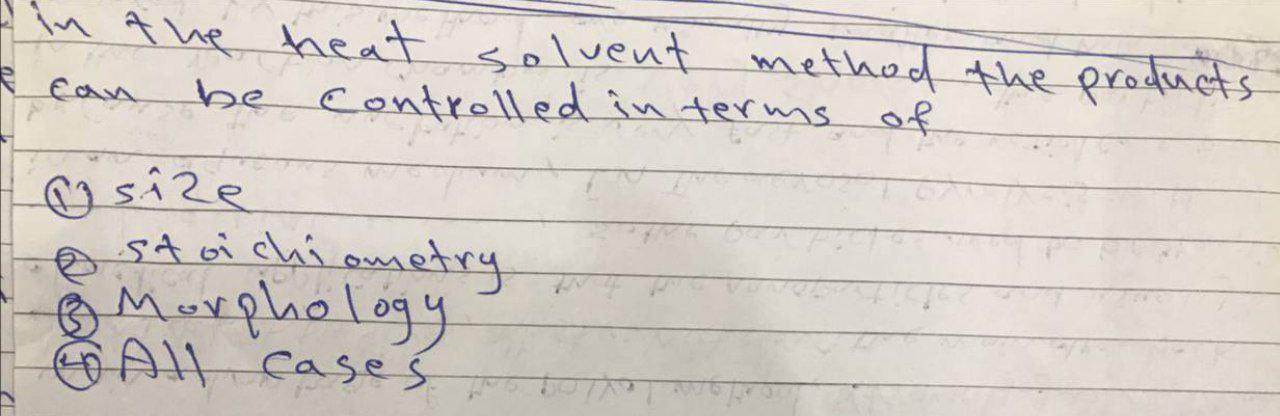 in the heat solvent method the products
can be controlled in terms of
① size
② stoichiometry
③ Morphology
④ All cases